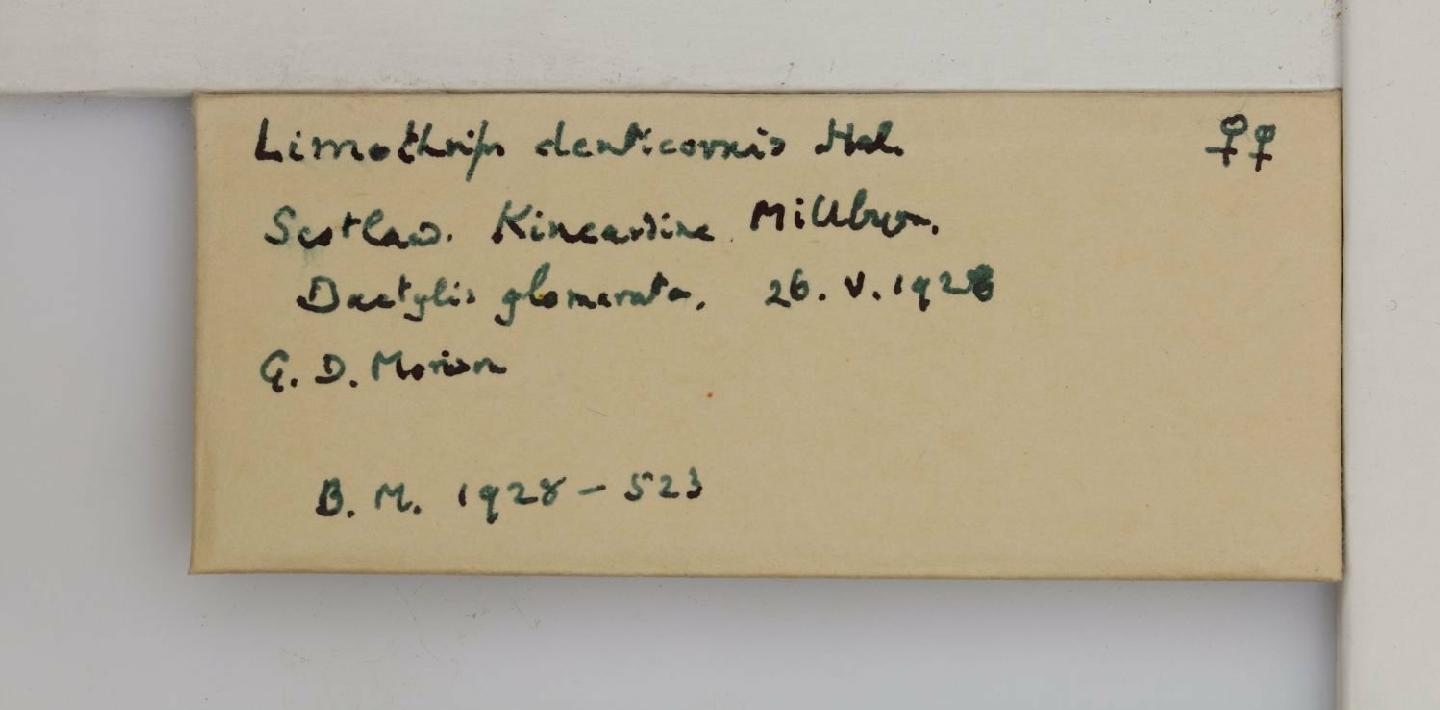 Limothrips denticornis Hal. ♀♀
Scotland. Kincardine. Millbrun.
Dactylis glomerata. 26. V. 1928
G. D. Morison
B. M. 1928 - 523